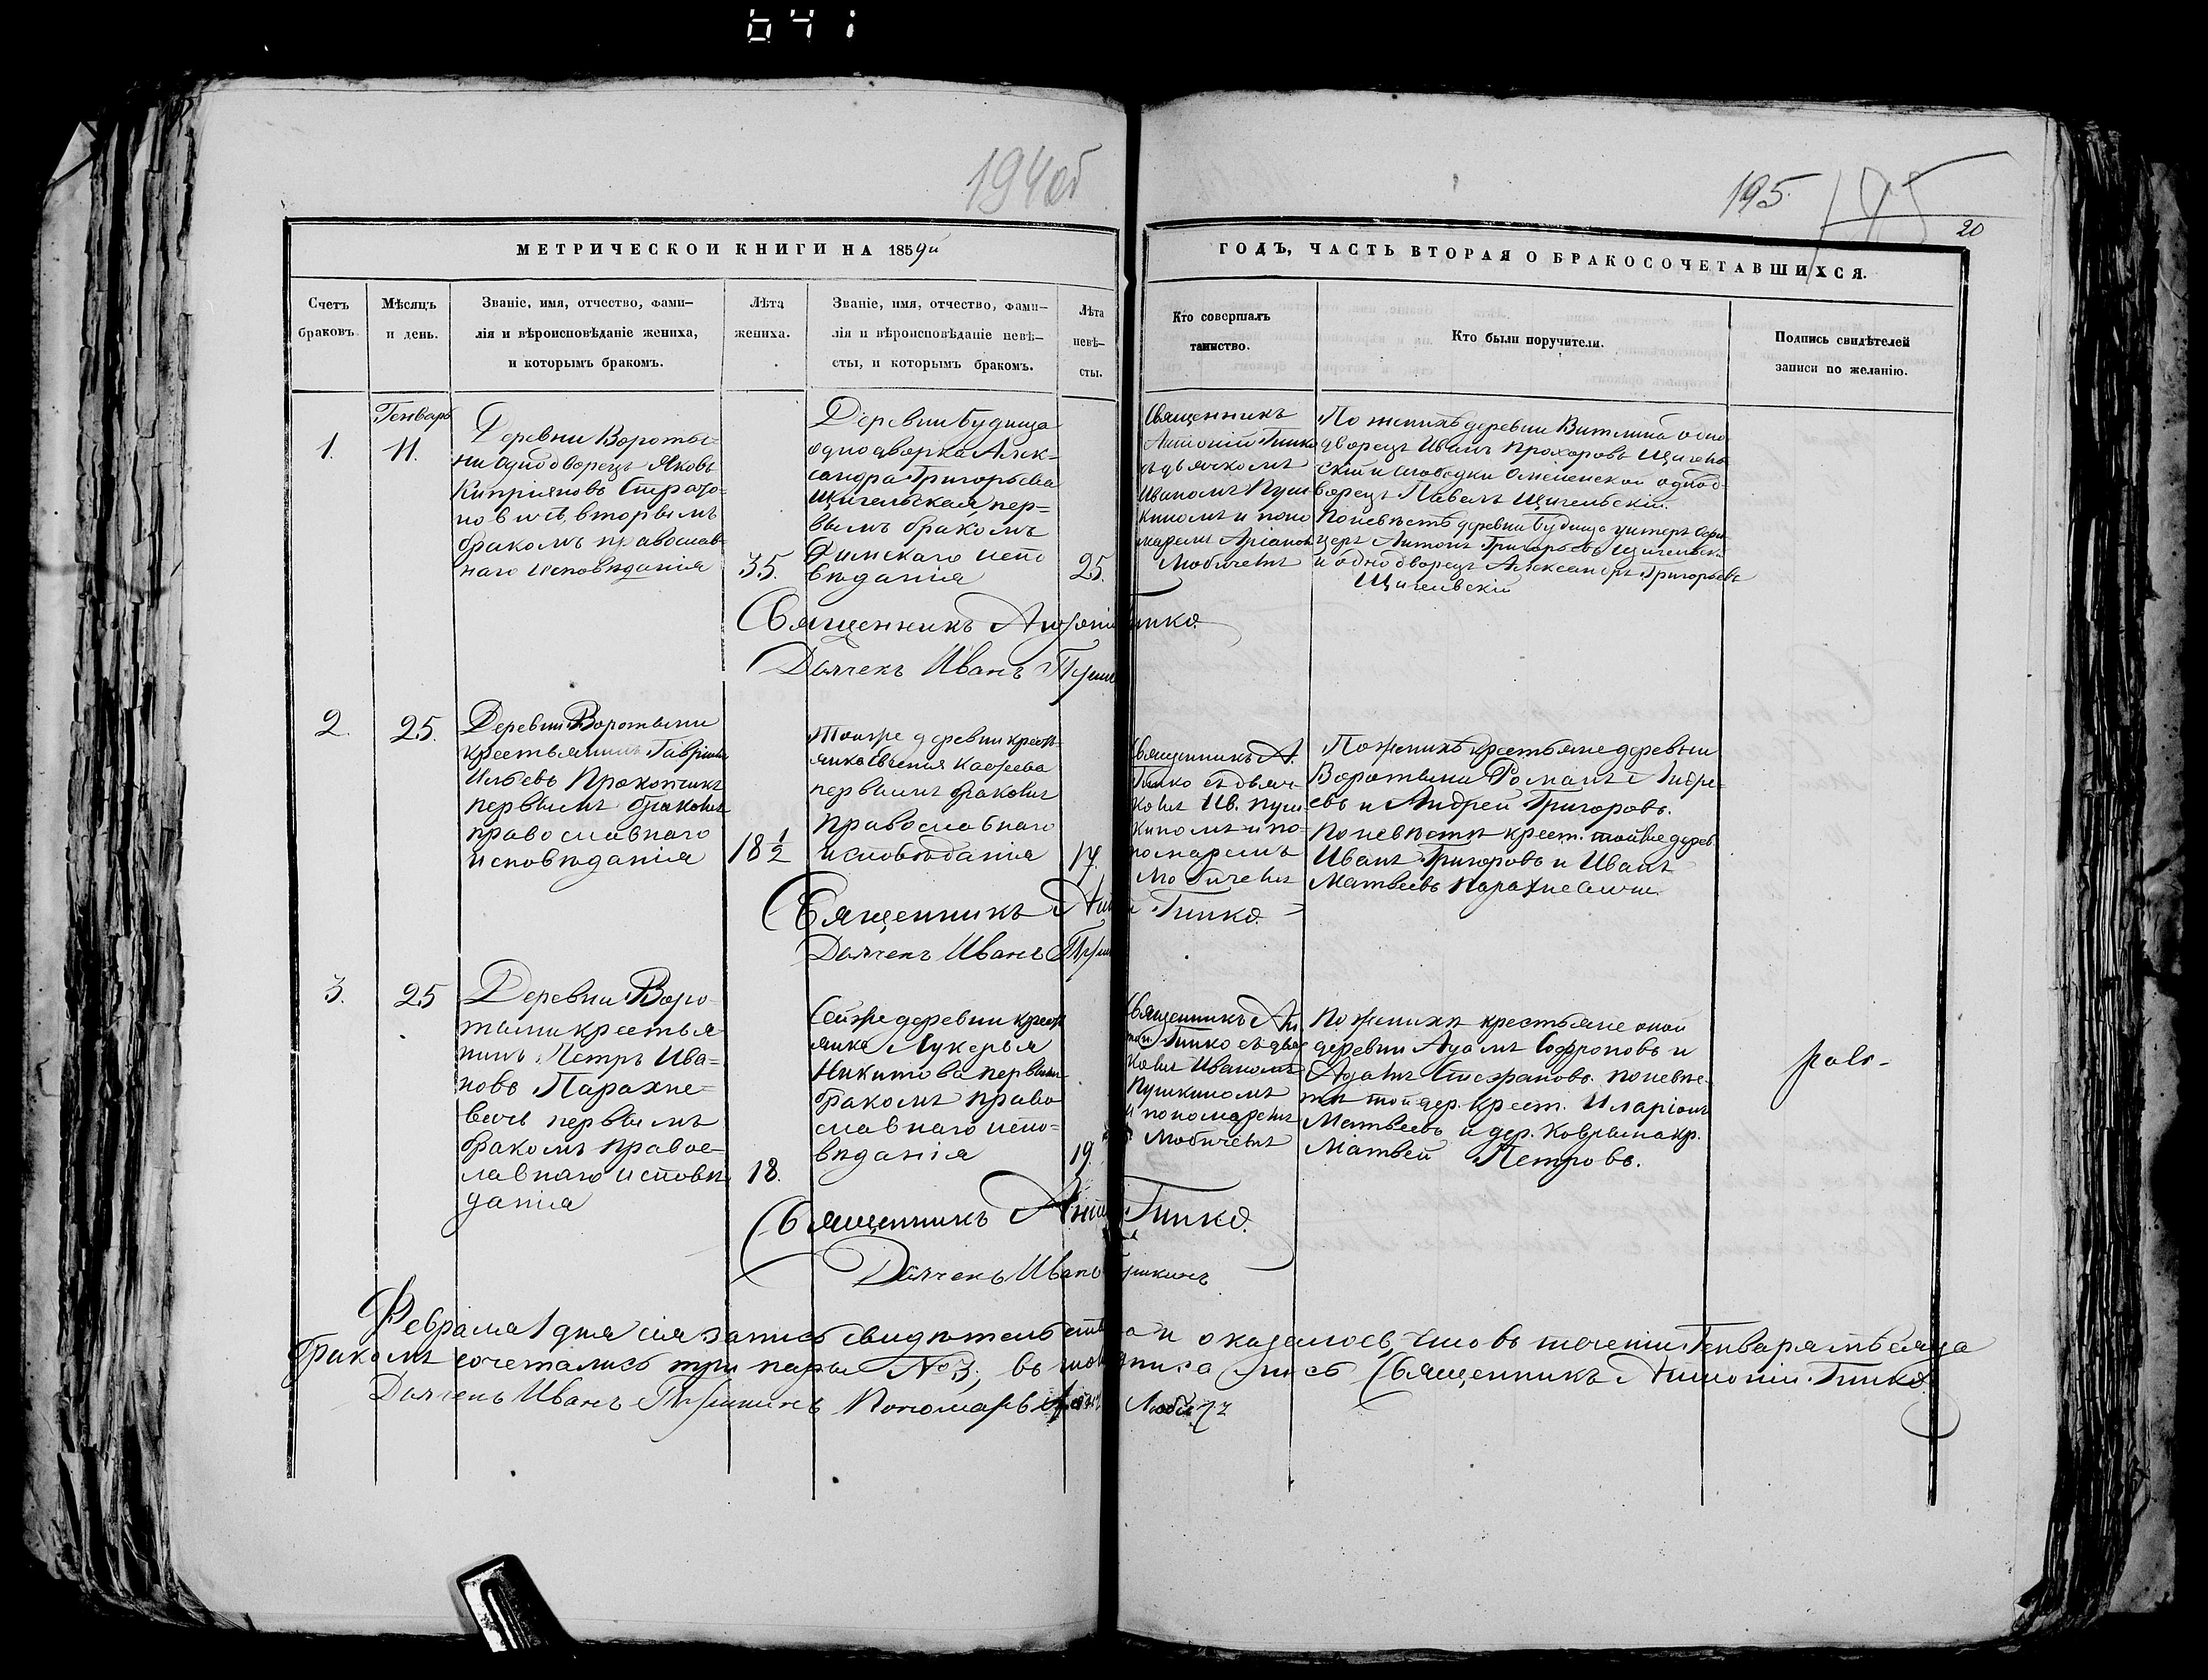 641
194об
195.
195
20
МЕТРИЧЕСКОЙ КНИГИ НА 1859й
ГОДЪ, ЧАСТЬ ВТОРАЯ О БРАКОСОЧЕТАВШИХСЯ.
Счетъ
браковъ.
Мѣсяцъ
и день.
Званіе, имя, отчество, фами-
лія и вѣроисповѣданіе жениха,
и которымъ бракомъ.
Лѣта
жениха.
Званіе, имя, отчество, фами-
лія и вѣроисповѣданіе невѣ-
сты, и которымъ бракомъ.
Лѣта
невѣ-
сты.
Кто совершалъ
таинство.
Кто были поручители.
Подпись свидѣтелей
записи по желанію.
1.
Генварь
11.
Деревни Вороты-
ни однодворецъ Яковъ
Кипріяновъ
вторымъ
бракомъ православ-
наго исповѣданія
35.
Деревни Будища
однодворка Алек-
сандра Григорьева
Щигельская, пер-
вымъ бракомъ
Римскаго испо
вѣданія
25.
Священникъ
Антоній Гинко
съ дьячкомъ
Иваномъ Пуш
кинымъ и поно
маремъ
По женихѣ деревни Витлина одно
дворецъ Иванъ Прохоровъ Щигель
скій и слободки однод
ворецъ Павелъ Щигельскій.
По невѣстѣ деревни Будища унтеръ офи
церъ Антонъ Григорьевъ Щигельскій
и однодворецъ Александръ Григорьевъ
Щигельскій
Священникъ Антоній Гинко.
Дьячекъ Иванъ Пушк
2.
25.
Деревни Воротыни
крестьянинъ Гавріилъ
Ильевъ Прокопчикъ
первымъ бракомъ
православнаго
исповѣданія
18 1/2
Тойже деревни крест
янка Евгенія
первымъ бракомъ
православнаго
исповѣданія
17.
Священникъ А.
Гинко съ дьяч-
комъ Ив. Пуш-
кинымъ и по-
номаремъ
По женихѣ крестьяне деревни
Воротыни Романъ Андре-
евъ и Андрей Григоровъ.
По невѣстѣ крест. тойже дерев
Иванъ Григоровъ и Иванъ
Матвеевъ
Священникъ Ант Гинко.
Дьячекъ Иванъ Пуш
3.
25
Деревни Воро-
тыни крестья
нинъ Петръ Ива-
новъ Парахне-
вичъ первымъ
бракомъ правос-
лавнаго исповѣ
данія
18.
Сейже деревни крест
янка Лукерья
Никитова первымъ
бракомъ право
славнаго испо-
вѣданія
19.
Священникъ Ан
тон Гинко съ дьяч
комъ Иваномъ
Пушкинымъ
и пономаремъ
По женихѣ крестьяне оной
деревни Адамъ Софроновъ и
Адамъ Стефановъ. по невѣ-
стѣ той дер. крест. Иларіонъ
Матвеевъ и дер. Коврына кр.
Матвей Петровъ.
Священникъ Антон Гинко.
Дьячекъ Иванъ Пушкинъ
Февраля 1 дня сія запись свидѣтельствована и оказалось, что въ теченіи Генваря мѣсяца
бракомъ сочетались три пары №3, въ томъ подписались Священникъ Антоній Гинко
Дьячекъ Иванъ Пушкинъ Пономарь